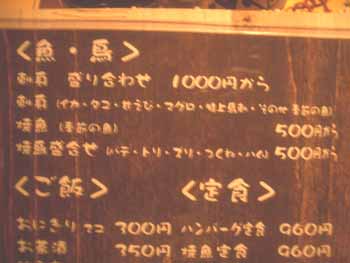 <魚・鳥>
刺身 盛り合わせ 1000円から
刺身 (イカ・タコ・甘えび・マグロ・ 季節の魚)
焼魚 (季節の魚) 500円から
焼鳥盛合せ (バテ・トリ・ズリ・つくね・ハム) 500円から
<ご飯> <定食>
おにぎり 2コ 300円 ハンバーグ定食 960円
お茶漬 350円 焼魚定食 960円